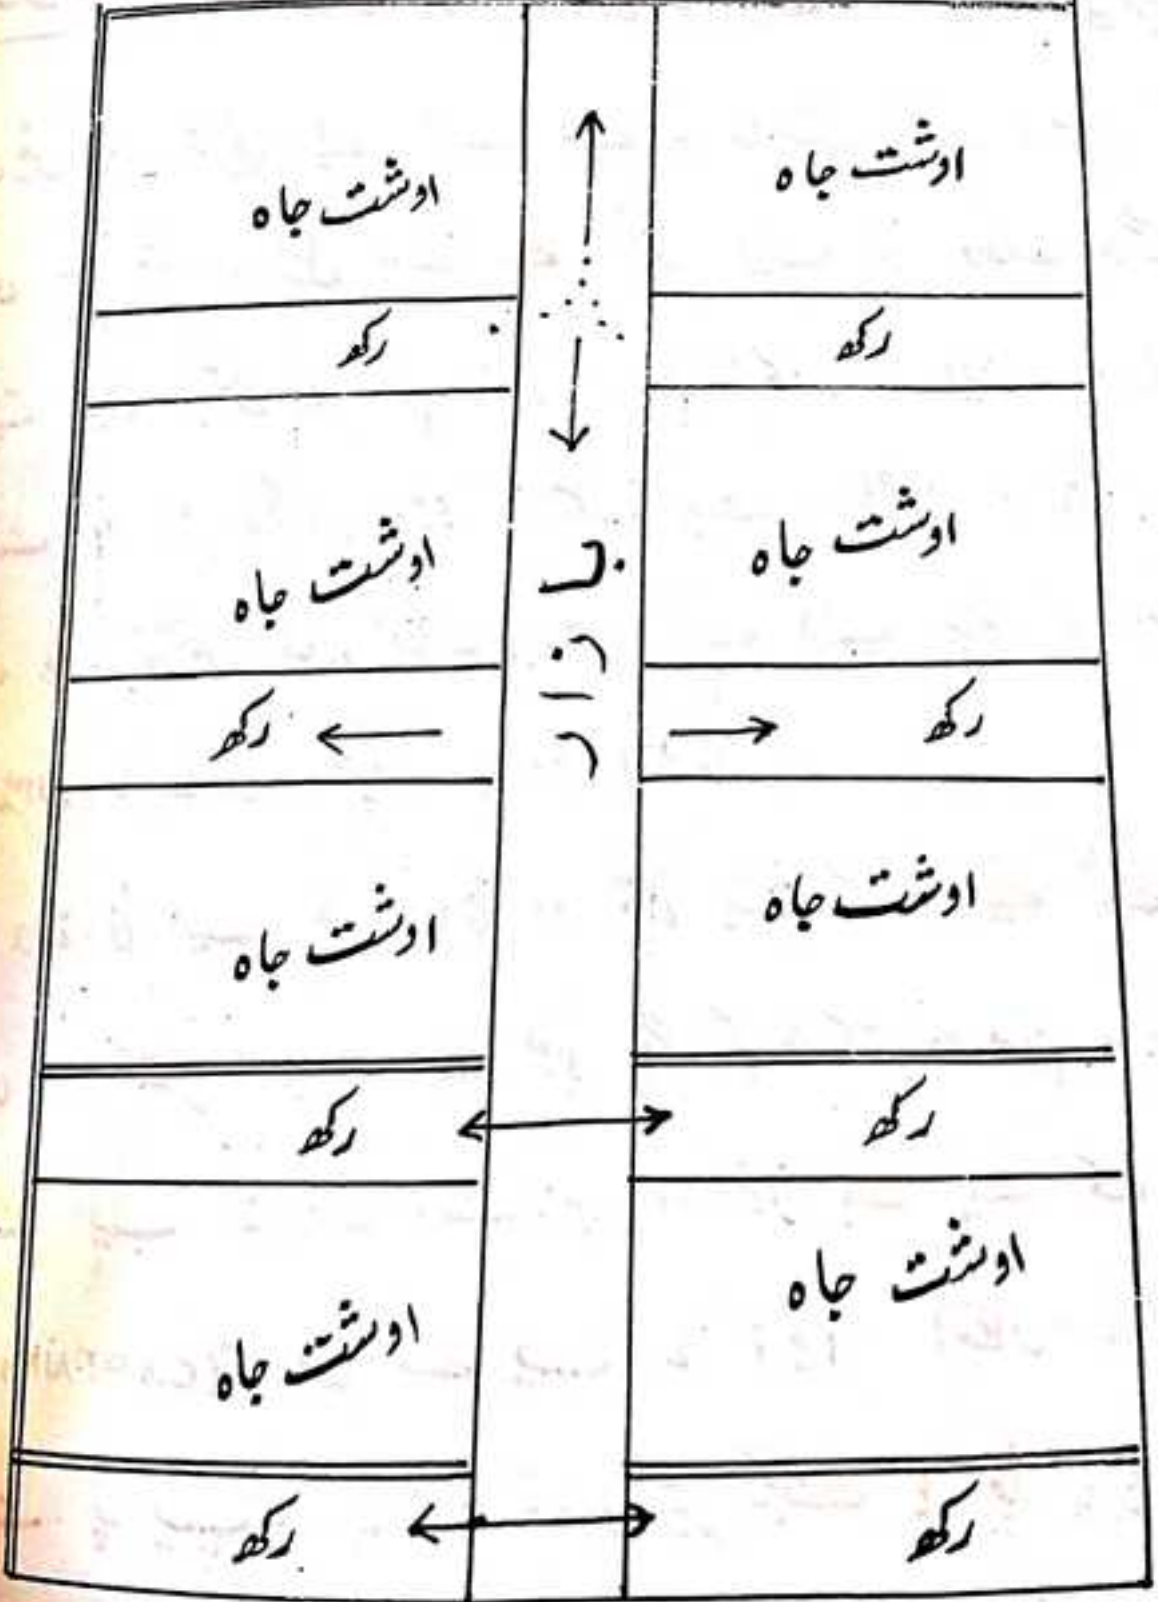 اوشت جاہ
اوشت جاہ
رکھ
رکھ
اوشت جاہ
اوشت جاہ
بازار
رکھ
رکھ
اوشت جاہ
اوشت جاہ
رکھ
رکھ
اوشت جاہ
اوشت جاہ
رکھ
رکھ